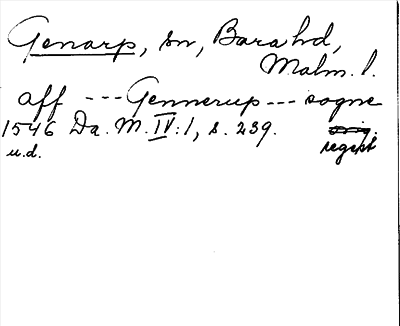 Genarp, sn, Bara hd,
Malm. l.
aff --- Gennerup --- sogne
1546 Da. M. IV:1, s. 239. orig.
u.d. regest